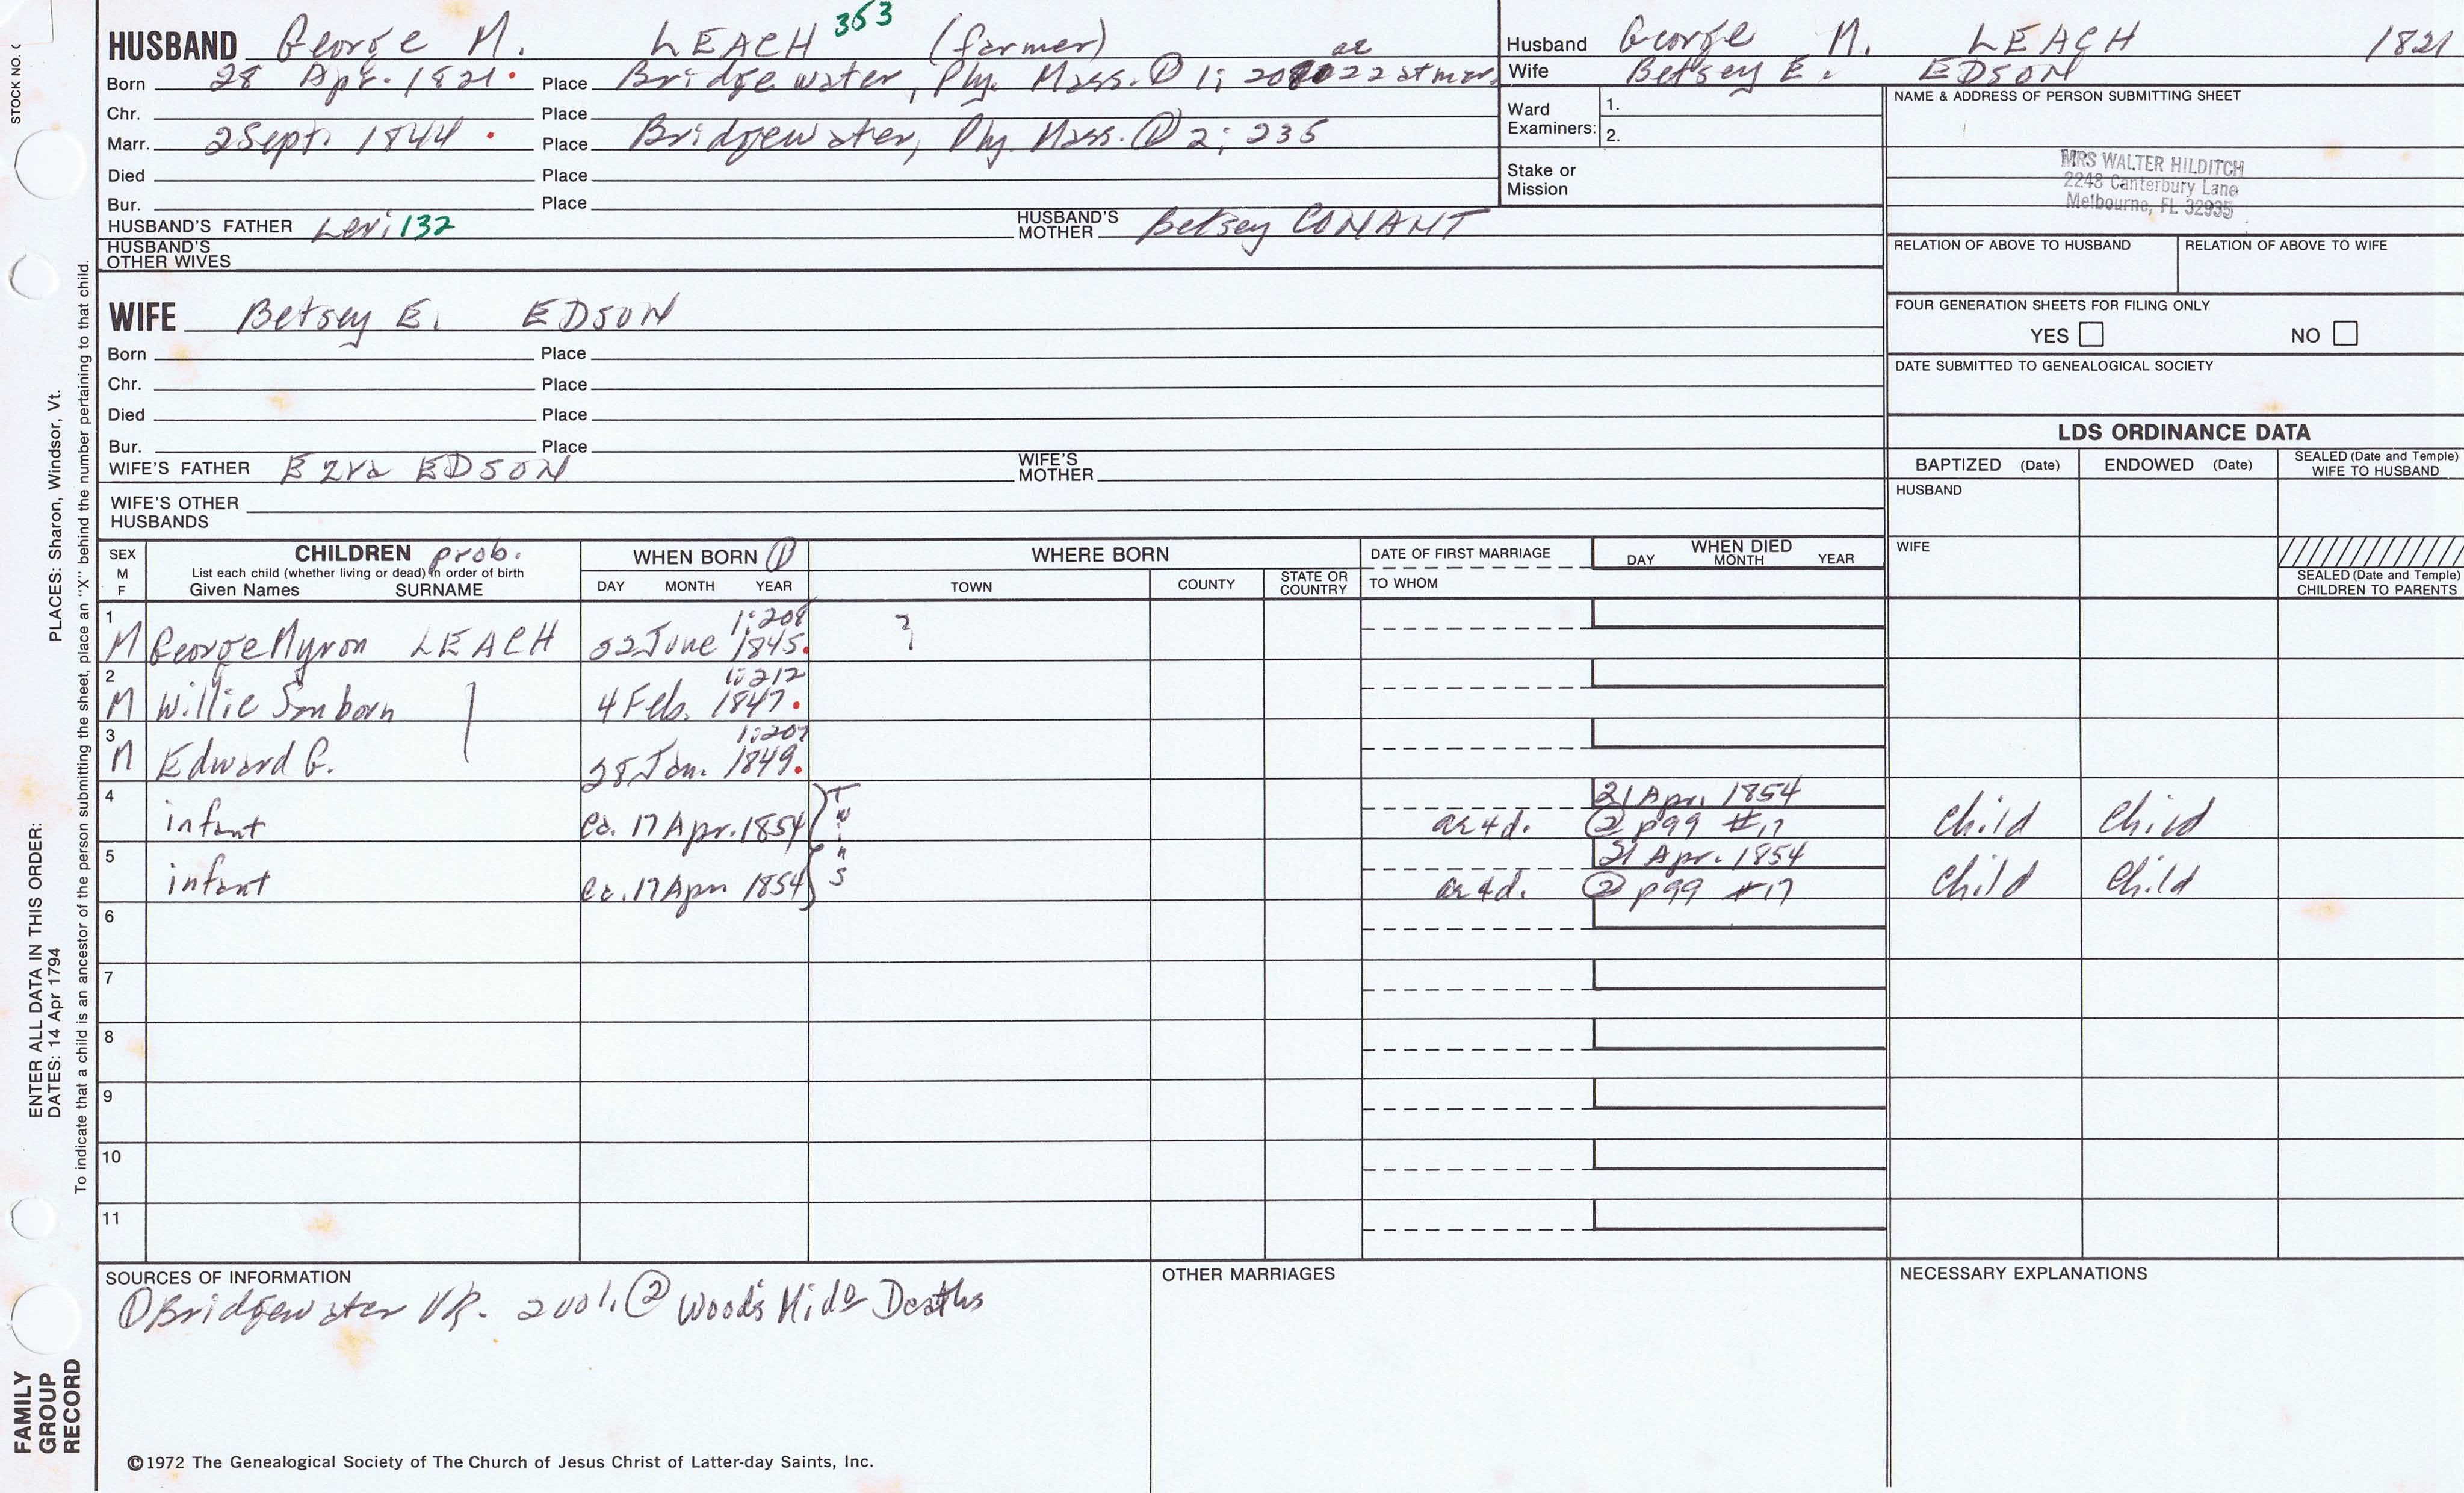 STOCK NO.
HUSBAND George M. LEACH 353 (farmer)
Born 28 Apr. 1821. Place Bridgewater, Ply. Mass. ① 1; 208 ae 22 at mar.
Chr. Place
Marr. 2 Sept. 1844. Place Bridgewater, Ply. Mass. ① 2; 235
Died Place
Bur. Place
HUSBAND'S FATHER Levi 132 HUSBAND'S MOTHER Betsey CONANT
HUSBAND'S OTHER WIVES
Husband George M. LEACH 1821
Wife Betsey E. EDSON
Ward Examiners: 1.
2.
Stake or Mission
NAME & ADDRESS OF PERSON SUBMITTING SHEET
MRS WALTER HILDITCH
2248 Canterbury Lane
Melbourne, FL 32935
RELATION OF ABOVE TO HUSBAND RELATION OF ABOVE TO WIFE
FOUR GENERATION SHEETS FOR FILING ONLY
YES NO
DATE SUBMITTED TO GENEALOGICAL SOCIETY
WIFE Betsey E. EDSON
Born Place
Chr. Place
Died Place
Bur. Place
WIFE'S FATHER Ezra EDSON WIFE'S MOTHER
WIFE'S OTHER HUSBANDS
LDS ORDINANCE DATA
BAPTIZED (Date) ENDOWED (Date) SEALED (Date and Temple) WIFE TO HUSBAND
HUSBAND
WIFE
SEALED (Date and Temple) CHILDREN TO PARENTS
SEX M F
CHILDREN prob.
List each child (whether living or dead) in order of birth
Given Names SURNAME
WHEN BORN ①
DAY MONTH YEAR
WHERE BORN
TOWN COUNTY STATE OR COUNTRY
DATE OF FIRST MARRIAGE
TO WHOM
WHEN DIED
DAY MONTH YEAR
1 M George Myron LEACH 22 June 1845. 1:208 ?
2 M Willie Sanborn 4 Feb. 1847. 1:212
3 M Edward G. 28 Jan. 1849. 1:207
4 infant ca. 17 Apr. 1854 Twins ae 4 d. 21 Apr. 1854 ② p99 #17 Child Child
5 infant ca. 17 Apr. 1854 ae 4 d. 21 Apr. 1854 ② p99 #17 Child Child
6
7
8
9
10
11
SOURCES OF INFORMATION
① Bridgewater VR. 2 vol. ② Wood's Mido Deaths
OTHER MARRIAGES
NECESSARY EXPLANATIONS
©1972 The Genealogical Society of The Church of Jesus Christ of Latter-day Saints, Inc.
FAMILY GROUP RECORD
ENTER ALL DATA IN THIS ORDER:
DATES: 14 Apr 1794
PLACES: Sharon, Windsor, Vt.
To indicate that a child is an ancestor of the person submitting the sheet, place an "X" behind the number pertaining to that child.